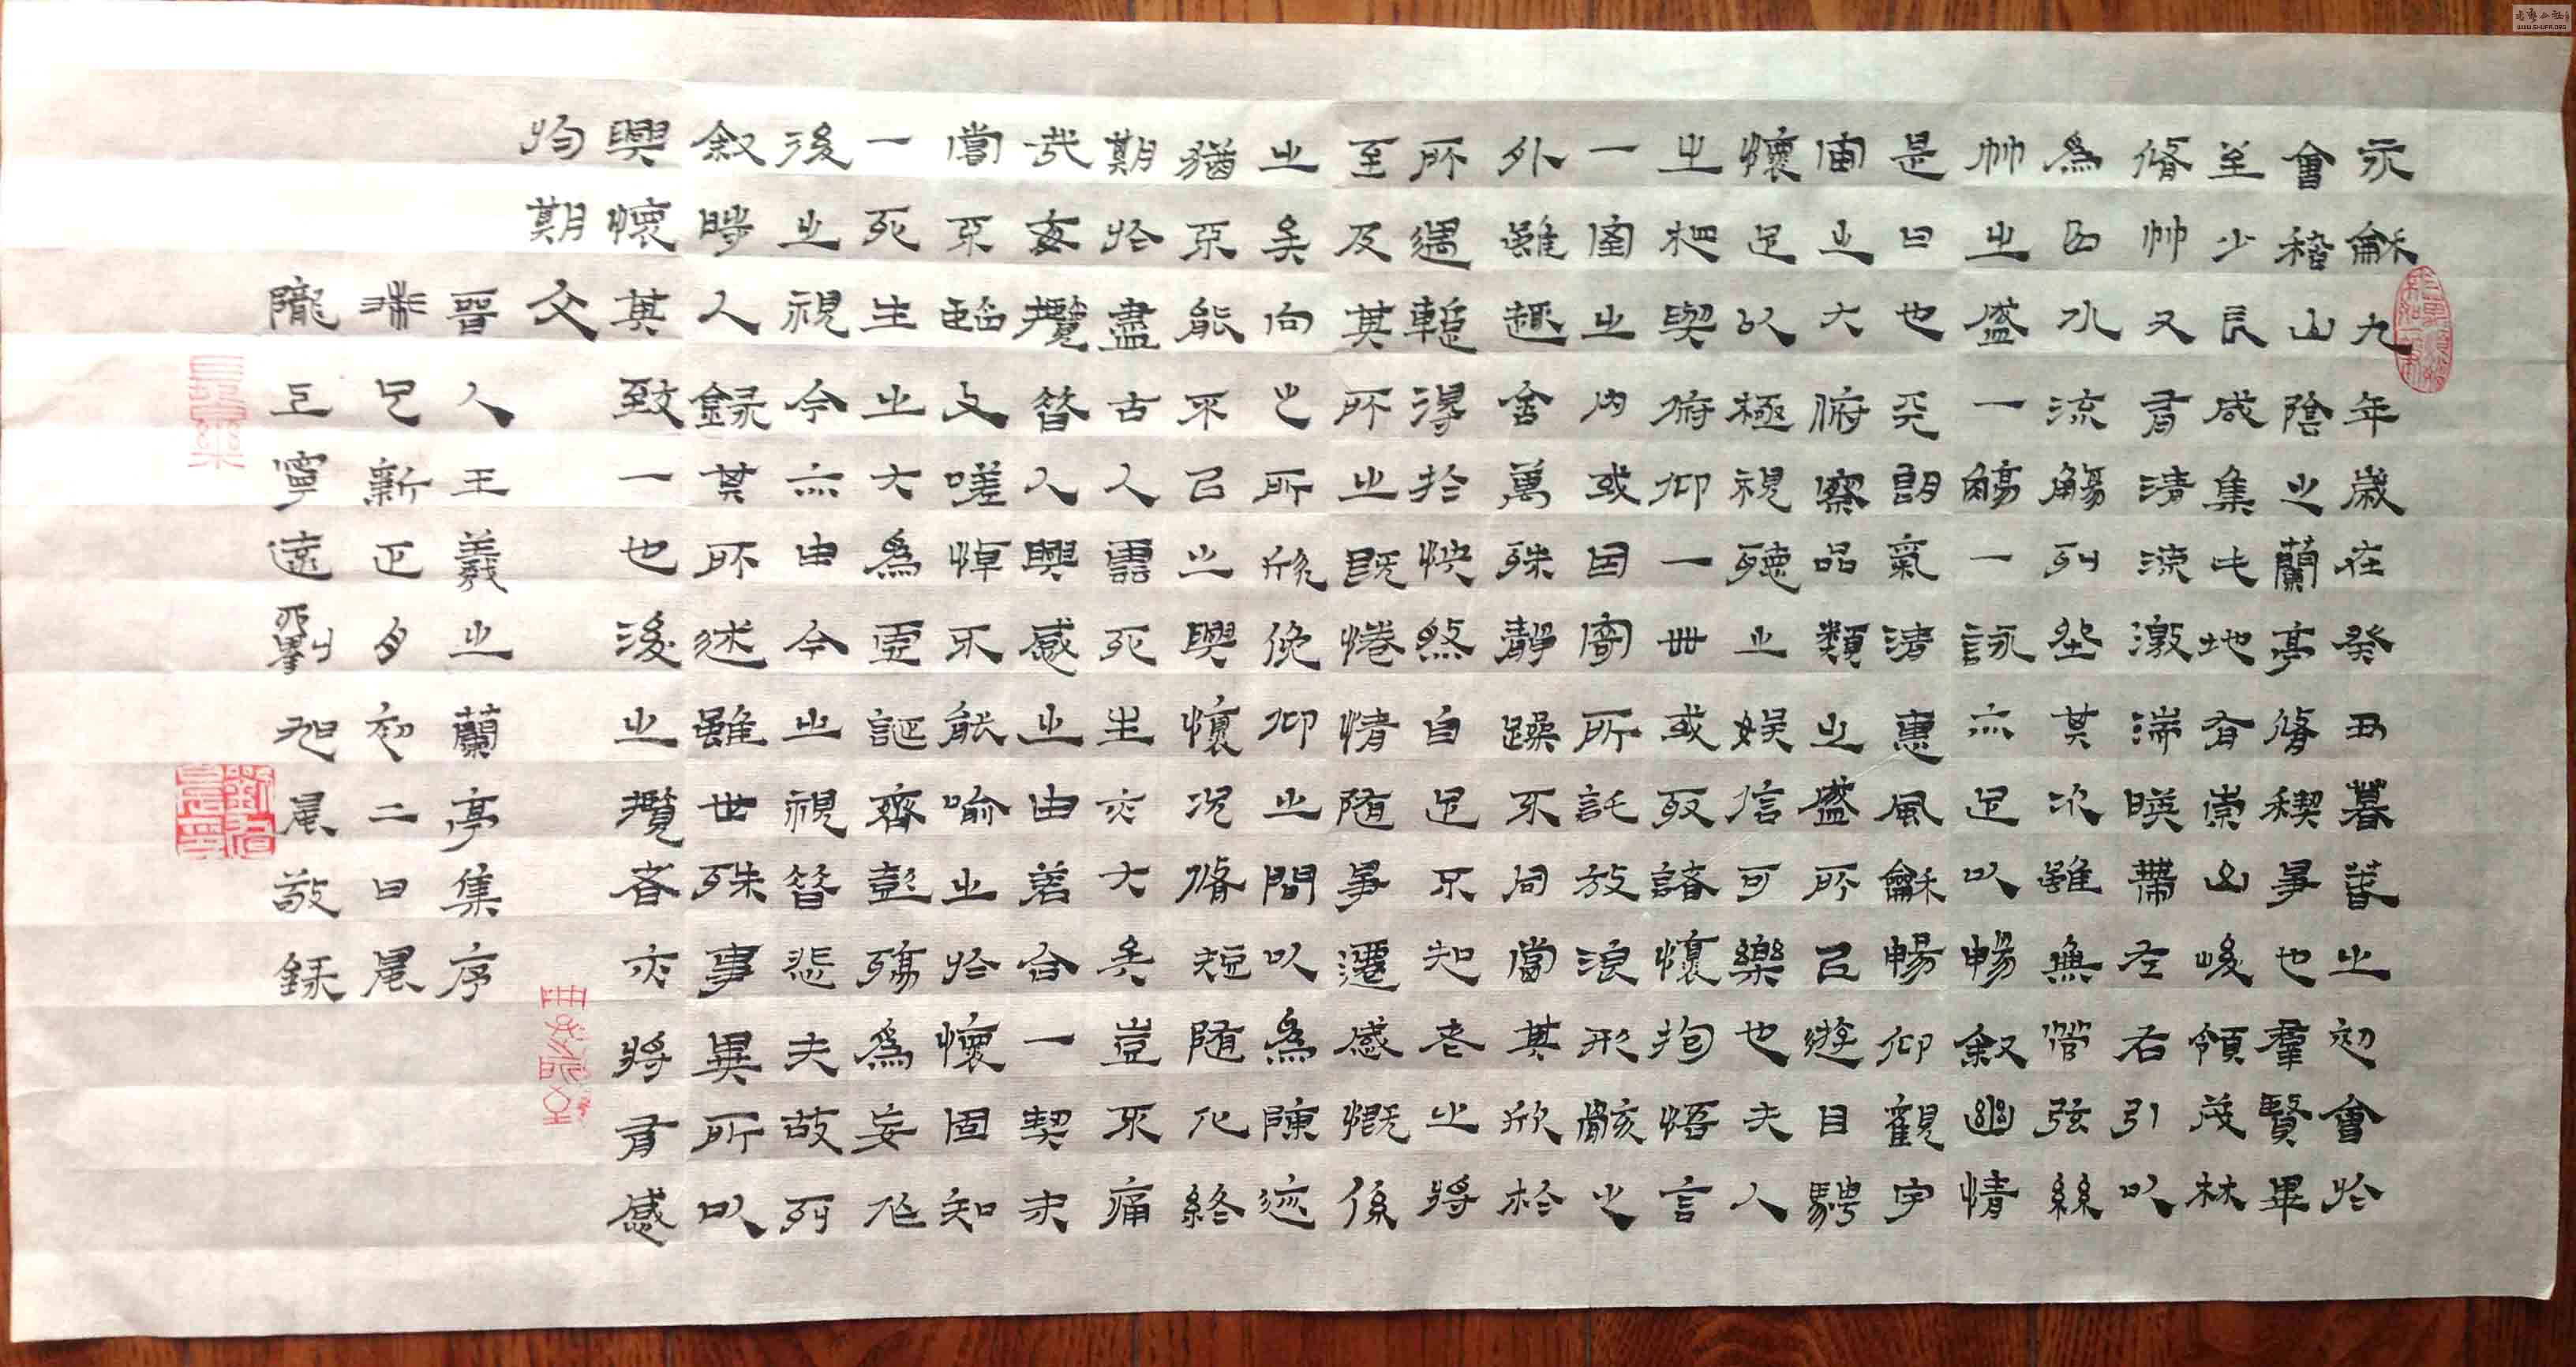 永龢九年歲在癸丑暮春之初會於
會稽山陰之蘭亭脩稧事也羣賢畢
至少長咸集此地有崇山峻領茂林
脩竹又有清流激湍暎帶左右引以
爲曲水流觴列坐其次雖無管弦絲
竹之盛一觴一詠亦足以暢敘幽情
是日也天朗氣清惠風龢暢仰觀宇
宙之大俯察品類之盛所已遊目騁
懷足以極視聽之娛信可樂也夫人
之相與俯仰一世或取諸懷抱悟言
一室之內或因寄所託放浪形骸之
外雖趣舍萬殊靜躁不同當其欣於
所遇蹔得於怏然自足不知老之將
至及其所之既惓情隨事遷感慨係
之矣向之所欣俛仰之間以爲陳迹
猶不能不已之興懷況脩短隨化終
期於盡古人雲死生亦大矣豈不痛
哉每攬昔人興感之由若合一契未
嘗不臨文嗟悼不能喻之於懷固知
一死生之大爲虛誕齊彭殤爲妄作
後之視今亦由今之視昔悲夫故列
敘時人錄其所述雖世殊事異所以
興懷其致一也後之攬者亦將有感
於期文
晉人王羲之蘭亭集序
巳新正月初二日晨
隴上寧遠劉旭晨敬錄
WWW.SHUFA.ORG